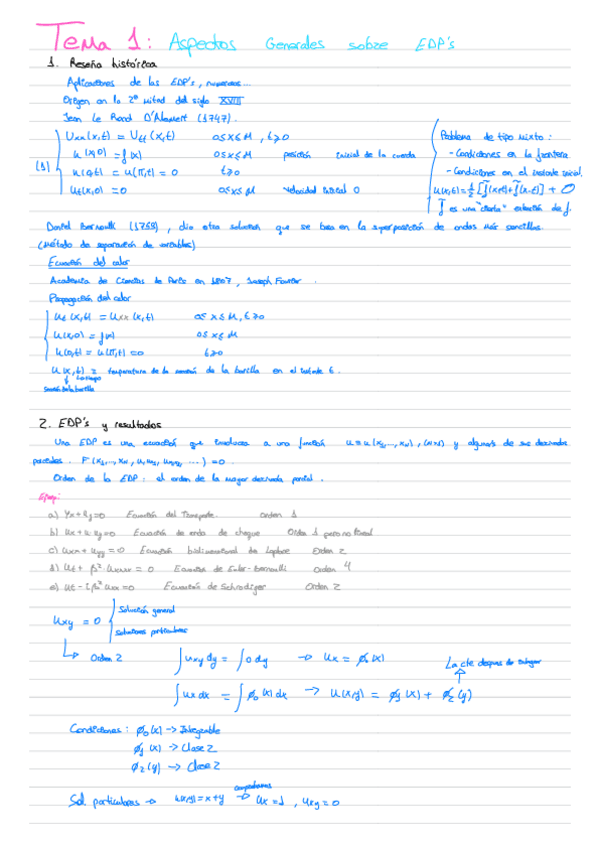 Tema 1: Aspectos Generales sobre EDP's
1. Reseña histórica
Aplicaciones de las EDP's, numerosas...
Origen en la 2ª mitad del siglo XVIII
Jean Le Rond D'Alembert (1747).
(1) Uxx(x,t) = Utt(x,t) 0≤x≤π, t≥0
u(x,0) = f(x) 0≤x≤π posición inicial de la cuerda
u(0,t) = u(π,t) = 0 t≥0
Ut(x,0) = 0 0≤x≤π Velocidad inicial 0
Problema de tipo mixto:
- Condiciones en la frontera
- Condiciones en el instante inicial.
f̃ es una "cierta" extensión de f.
Daniel Bernoulli (1753), dio otra solución que se basa en la superposición de ondas más sencillas
(Método de separación de variables)
Ecuación del calor
Academia de Ciencias de París en 1807, Joseph Fourier.
Propagación del calor
Ut(x,t) = Uxx(x,t) 0≤x≤π, t≥0
u(x,0) = f(x) 0≤x≤π
u(0,t) = u(π,t) = 0 t≥0
u(x,t) = temperatura de la sección de la barilla en el instante t.
tiempo
sección de la barilla
2. EDP's y resultados
Una EDP es una ecuación que involucra a una función u=u(x1,...,xN), (N>1) y alguna/s de sus derivadas
parciales. F(x1,...,xN, u, ux1, ux1x2, ...) = 0.
Orden de la EDP: el orden de la mayor derivada parcial.
Ejemp:
a) Ux+Uy=0 Ecuación del Transporte. Orden 1
b) Ux+u·Uy=0 Ecuación de onda de choque Orden 1 pero no lineal
c) Uxx+Uyy=0 Ecuación bidimensional de Laplace Orden 2
d) Utt+β²·Uxxxx=0 Ecuación de Euler-Bernoulli Orden 4
e) Ut-iβ²Uxx=0 Ecuación de Schrodiger Orden 2
Uxy = 0
Solución general
Soluciones particulares
Orden 2 ∫Uxy dy = ∫0 dy → Ux = ϕ0(x)
La cte despues de integrar
∫Ux dx = ∫ϕ0(x) dx → U(x,y) = ϕ1(x) + ϕ2(y)
Condiciones: ϕ0(x) → Integrable
ϕ1(x) → Clase 2
ϕ2(y) → Clase 2
Sol. particulares → u(x,y)=x+y comprobamos → Ux=1, Uxy=0